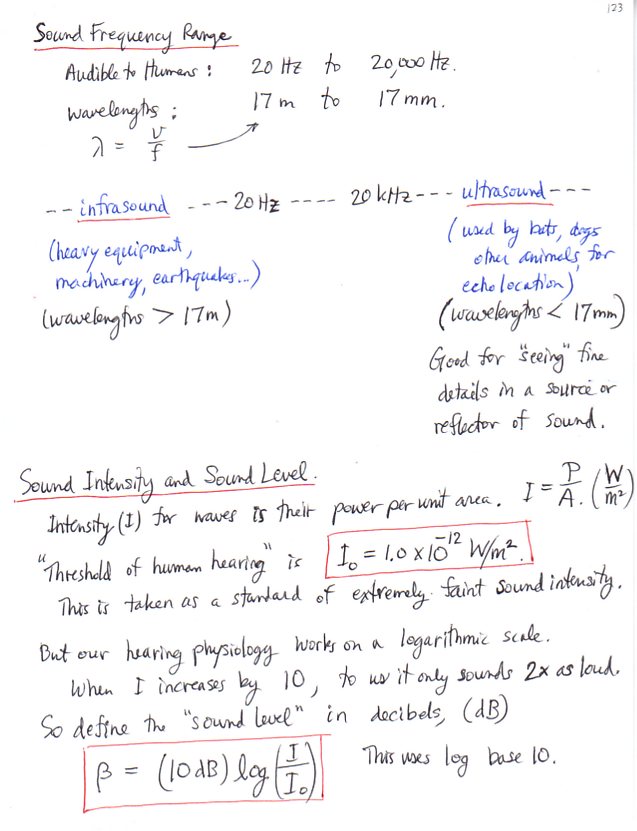 123
Sound Frequency Range
Audible to Humans: 20 Hz to 20,000 Hz.
Wavelengths: 17 m to 17 mm.
λ = v/f
-- infrasound --- 20 Hz ---- 20 kHz --- ultrasound ---
(heavy equipment, machinery, earthquakes...)
(wavelengths > 17 m)
(used by bats, dogs, other animals for echo location)
(wavelengths < 17 mm)
Good for "seeing" fine
details in a source or
reflector of sound.
Sound Intensity and Sound Level.
Intensity (I) for waves is their power per unit area. I = P/A. (W/m²)
"Threshold of human hearing" is I₀ = 1.0 x 10⁻¹² W/m².
This is taken as a standard of extremely faint sound intensity.
But our hearing physiology works on a logarithmic scale.
When I increases by 10, to us it only sounds 2x as loud.
So define the "sound level" in decibels, (dB)
β = (10 dB) log (I/I₀) This uses log base 10.